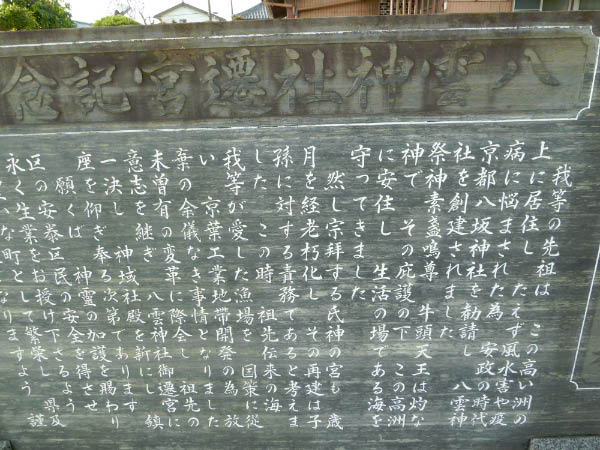 八雲神社遷宮記念
我等の先祖は この高い洲の
上に居住し たえず風水害や疫
病に悩まされた為 安政の時代
京都八坂神社を勧請し 八雲神
社を創建されました
祭神素盞鳴尊 牛頭天王は灼な
神で その庇護の下 この高洲
に安住し 生活の場である海を
守ってきました
然し宗拝する氏神の宮も 歳
月を経老朽化し その再建は子
孫に対する責務であると考えま
した この時 祖先伝来の海
我等が愛した漁場を 国策に従
い 京葉工業地帯開発の為 放
棄の余儀なき事情となりました
未曽有の変革に際会し 祖先の
意志を継ぎ 八雲神社御遷宮に
一決し 神域社殿を新にし 鎮
座を仰ぎ奉る次第であります
願くば 神霊の加護を賜わり
区民の安全を得させ
授け下さるよう
永